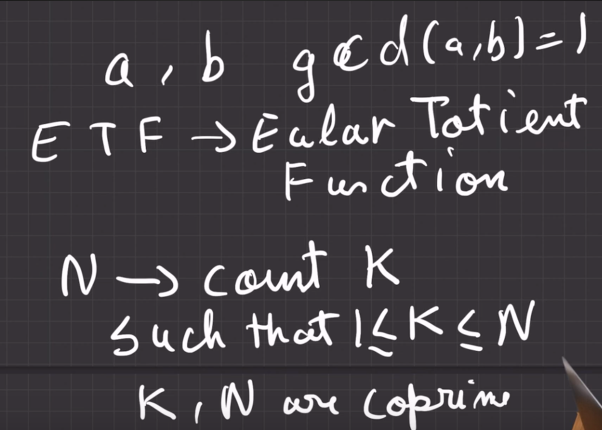 a, b gcd(a,b)=1
ETF → Eular Totient
Function
N → count K
such that 1≤K≤N
K, N are coprime